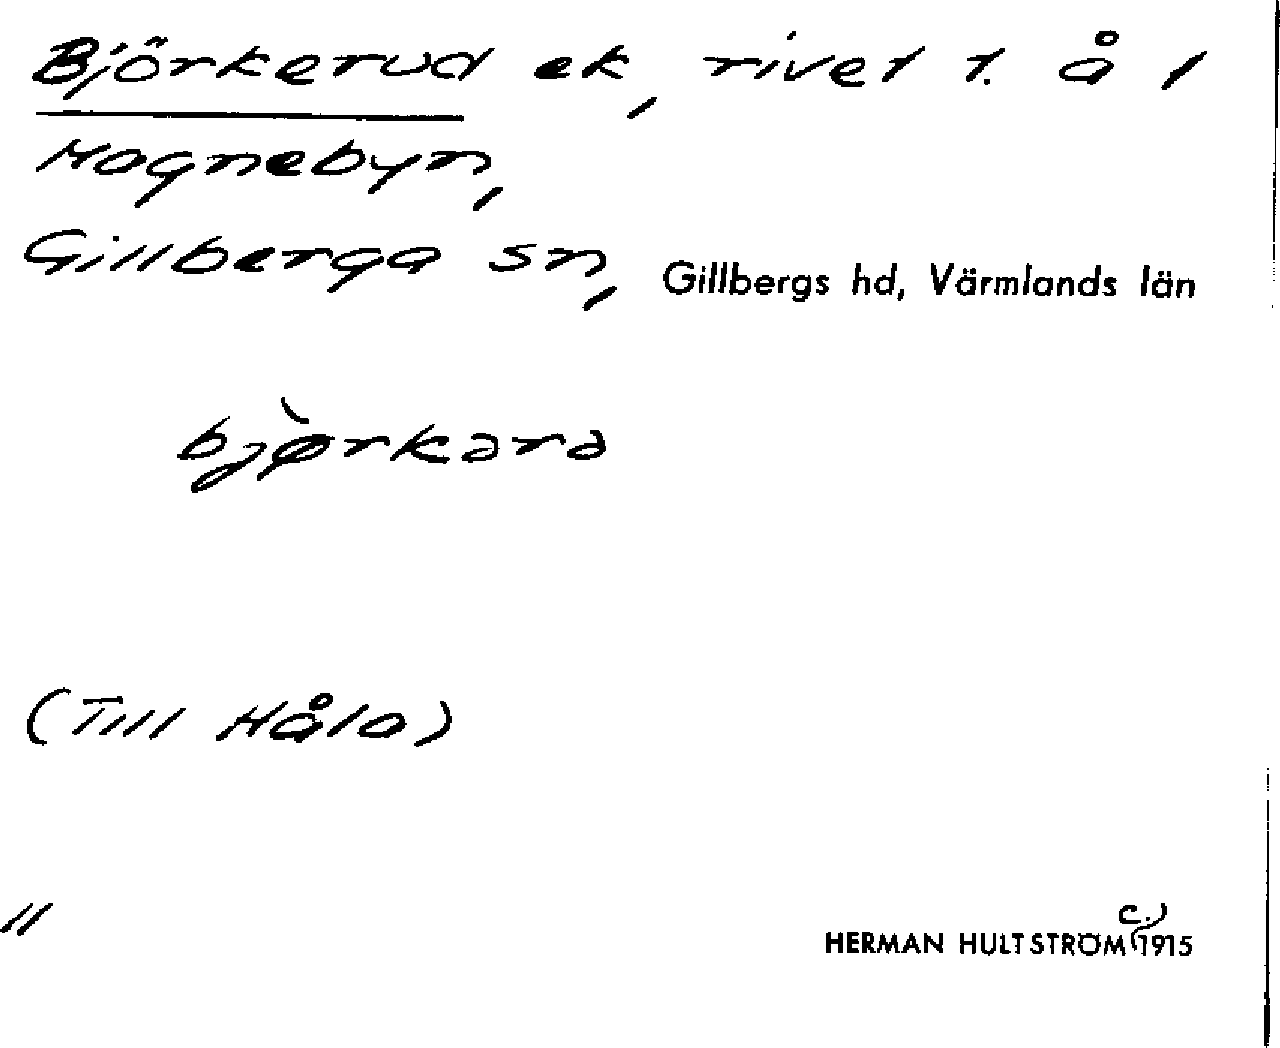 Björkerud ek, rivet t. å 1
Hognebyn,
Gillberga sn, Gillbergs hd, Värmlands län
bjø̀rkərə
(Till Håla)
11
c.)
HERMAN HULTSTRÖM 1915